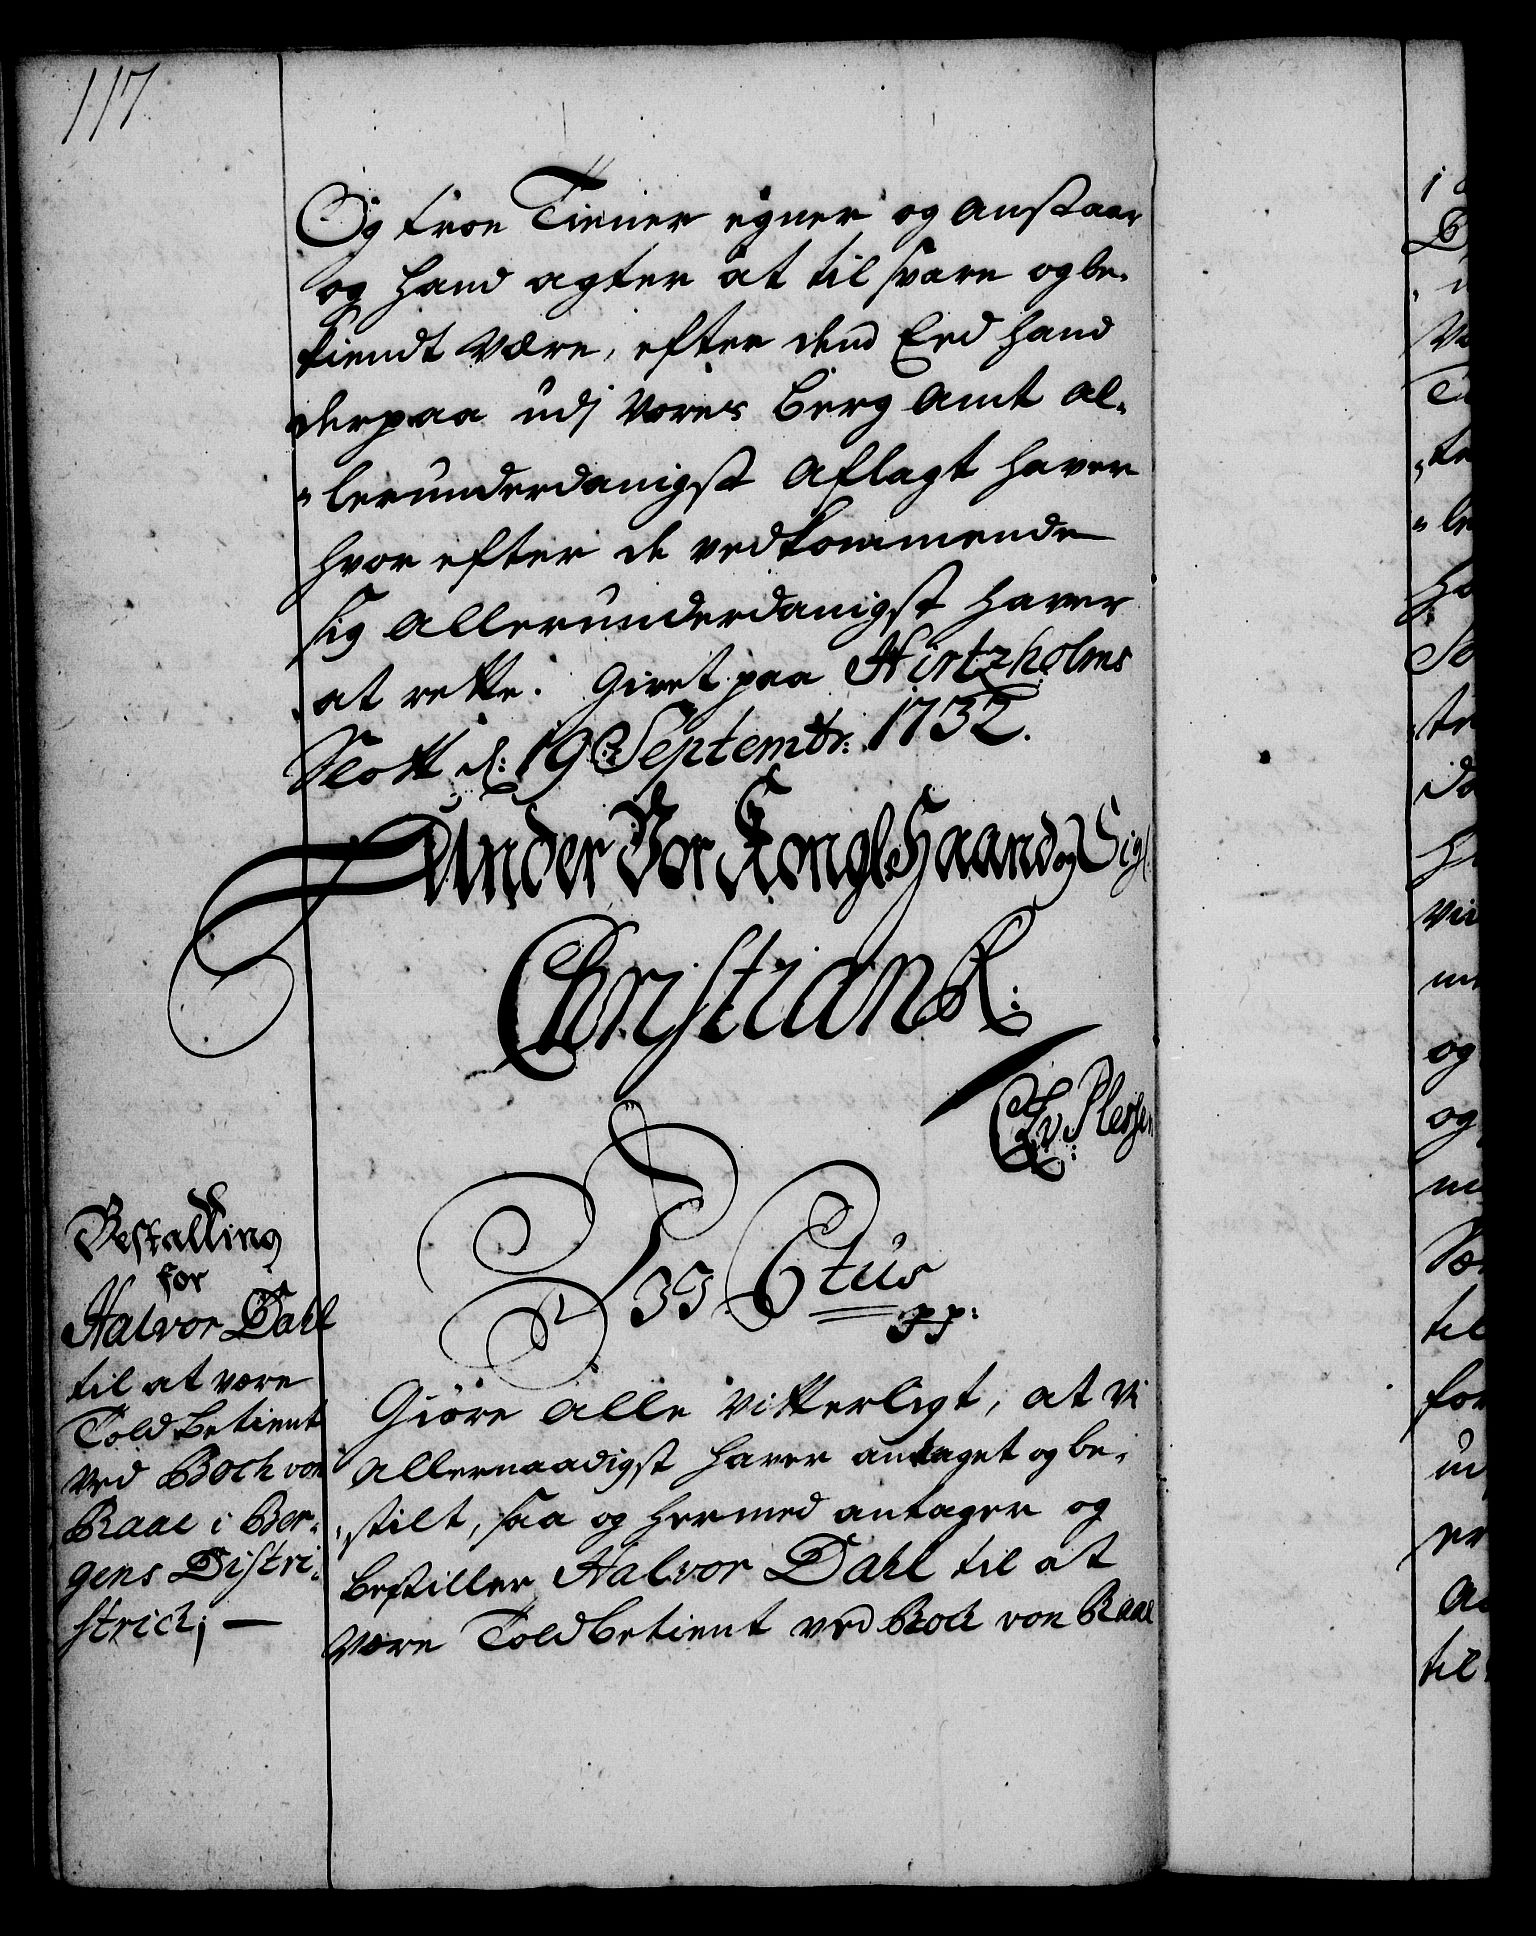 117
Og troe Tiener egner og anstaar
og hand agter at til svare og be-
kiendt være, efter dend Eed hand
derpaa udj Vores Berg Amt al-
lerunderdanigst aflagt haver
hvor efter de vedkommende
sig allerunderdanigst haver
at rette. Givet paa Hirtzholms
Slott d: 19 Septembr: 1732.
Under Vor Kongl: Haand og Sigl
Christian R:
CAv: Plessen
Bestalling
for
Halvor Dahl
til at være
Told betient
ved Boch von
Raae i Ber-
gens Distri-
strict; —
Vi C 6tus
pp:
Giøre alle vitterligt, at Vi
allernaadigst haver antaget og be-
stilt, saa og hermed antager og
bestiller Halvor Dahl til at
være Toldbetient ved Bock von Raae